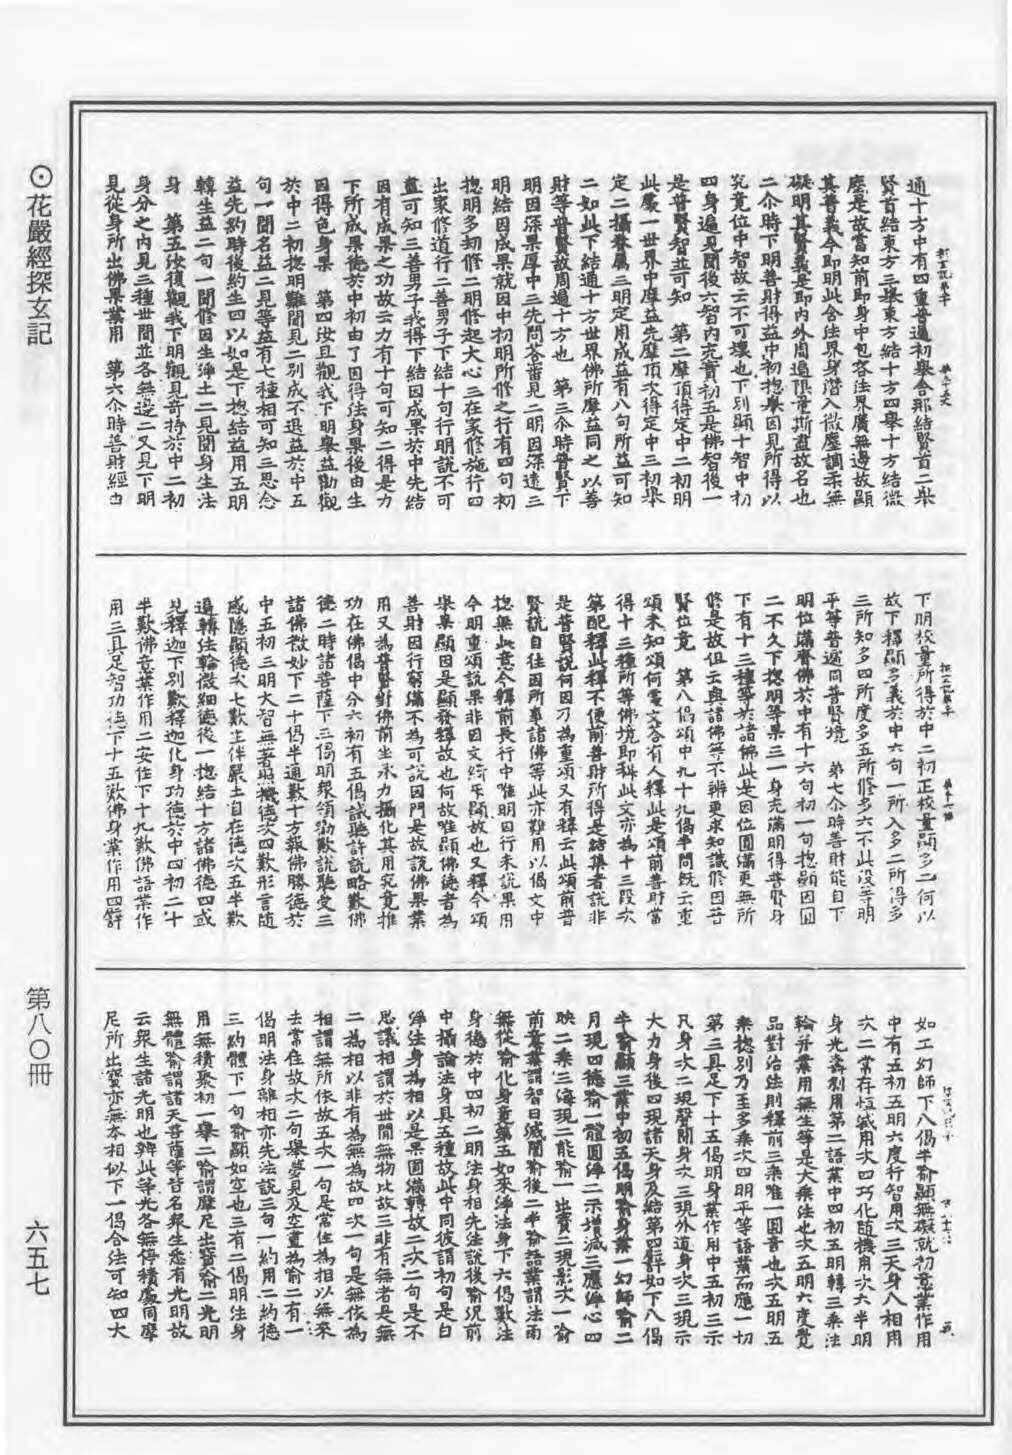 ⊙花嚴經探玄記
第八〇冊
六五七
通十方中有四重普遍初舉舍那結賢首二舉
賢首結東方三舉東方結十方四舉十方結微
塵是故當知前即身中包容法界廣無邊故顯
其普義今即明此舍法界身潛入微塵調柔無
礙明其賢義是即內外周遍限量斯盡故名也
二尒時下明善財得益中初揔舉因見所得以
究竟位中智故云不可壞也下別顯十智中初
四身遍見聞後六智內充實初五是佛智後一
是普賢智並可知　第二摩頂得定中二初明
此處一世界中摩益先摩頂次得定中三初舉
定二攝眷屬三明定用成益有八句所益可知
二如此下結通十方世界佛所摩益同之以善
財等普賢故周遍十方也　第三尒時普賢下
明因深果厚中三先問答審見二明因深遠三
明結因成果就因中初明所修之行有四句初
揔明多劫修二明修起大心三在家修施行四
出家修道行二善男子下結十句行明說不可
盡可知三善男子我得下結因成果於中先結
因有成果之功故云力有十句可知二得是力
下所成果德於中初由了因得法身果後由生
因得色身果　第四汝且觀我下明舉益勸觀
於中二初揔明難聞見二別成不退益於中五
句一聞名益二見等益有七種相可知三思念
益先約時後約生四以如是下揔結益用五明
轉生益二句一聞修因生淨土二見聞身生法
身　第五汝復觀我下明觀見奇持於中二初
身分之內見三種世間並各無邊二又見下明
見從身所出佛果業用　第六尒時善財經白
下明校量所得於中二初正校量顯多二何以
故下釋顯多義於中六句一所入多二所得多
三所知多四所度多五所修多六不此沒等明
平等普遍同普賢境　第七尒時善財能自下
明位滿齊佛於中有十六句初一句揔顯因圓
二不久下揔明等果三一身充滿明得普賢身
下有十三種等於諸佛此是因位圓滿更無所
修是故但云與諸佛等不辨更求知識修因普
賢位竟　第八偈頌中九十九偈半問既云重
頌未知頌何處文答有人釋此是頌前善財當
得十三種所等佛境即科此文亦為十三段次
第配釋此釋不便前善財所得是結集者說非
是普賢說何因乃為重頌又有釋云此頌前普
賢說自往因所事諸佛等此亦難用以偈文中
揔無此意今釋前長行中唯明因行未說果用
今明重頌說果非因文綺互顯故也又釋今頌
舉果顯因是顯發釋故也何故唯顯佛德者為
善財因行窮滿不為可說因門是故說佛果業
用又為普賢對佛前生承力攝化其用究竟推
功在佛偈中分六初有五偈誡聽許說略歎佛
德二時諸菩薩下三偈明眾領勸歎說聽受三
諸佛微妙下二十偈半通歎十方報佛勝德於
中五初三明大智無著照機德次四歎形言隨
感隱顯德次七歎主伴嚴土自在德次五半歎
遍轉法輪微細德後一揔結十方諸佛德四或
見釋迦下別歎釋迦化身功德於中四初二十
半歎佛意業作用二安住下十九歎佛語業作
用三具足智功德下十五歎佛身業作用四辟
如工幻師下八偈半喻顯無礙就初意業作用
中有五初五明六度行智用次三天身八相用
次二常存恒寂用次四巧化隨機用次六半明
身光壽剎用第二語業中四初五明轉三乘法
輪并業用無生等是大乘法也次五明六度覺
品對治法則釋前三乘唯一圓音也次五明五
乘揔別乃至多乘次四明平等語業而應一切
第三具足下十五偈明身業作用中五初三示
凡身次二現聲聞身次三現外道身次三現示
大力身後四現諸天身及結第四辟如下八偈
半喻顯三業中初五偈明喻身業一幻師喻二
月現四德喻一體圓淨二示增減三應淨心四
映二乘三海現二能喻一出寶二現影次一喻
前意業謂智日滅闇喻後二半喻語業謂法雨
無從喻化身意第五如來淨法身下六偈歎法
身德於中四初二明法身相先法說後喻況前
中攝論法身具五種故此中同彼謂初句是白
淨法身為相以是果圓滿轉故二次二句是不
思議相謂於世間無物比故三非有無者是無
二為相以非有為無為故四次一句是無依為
相謂無所依故五次一句是常住為相以無來
去常住故次二句舉夢見及空畫為喻二有一
偈明法身離相亦先法說三句一約用二約德
三約體下一句喻顯如空也三有二偈明法身
用無積聚初一舉二喻謂摩尼出寶喻二光明
無體喻謂諸天菩薩等皆名眾生悉有光明故
云眾生諸光明也辨此等光各無停積處同摩
尼所出寶亦無本相似下一偈合法可知四大